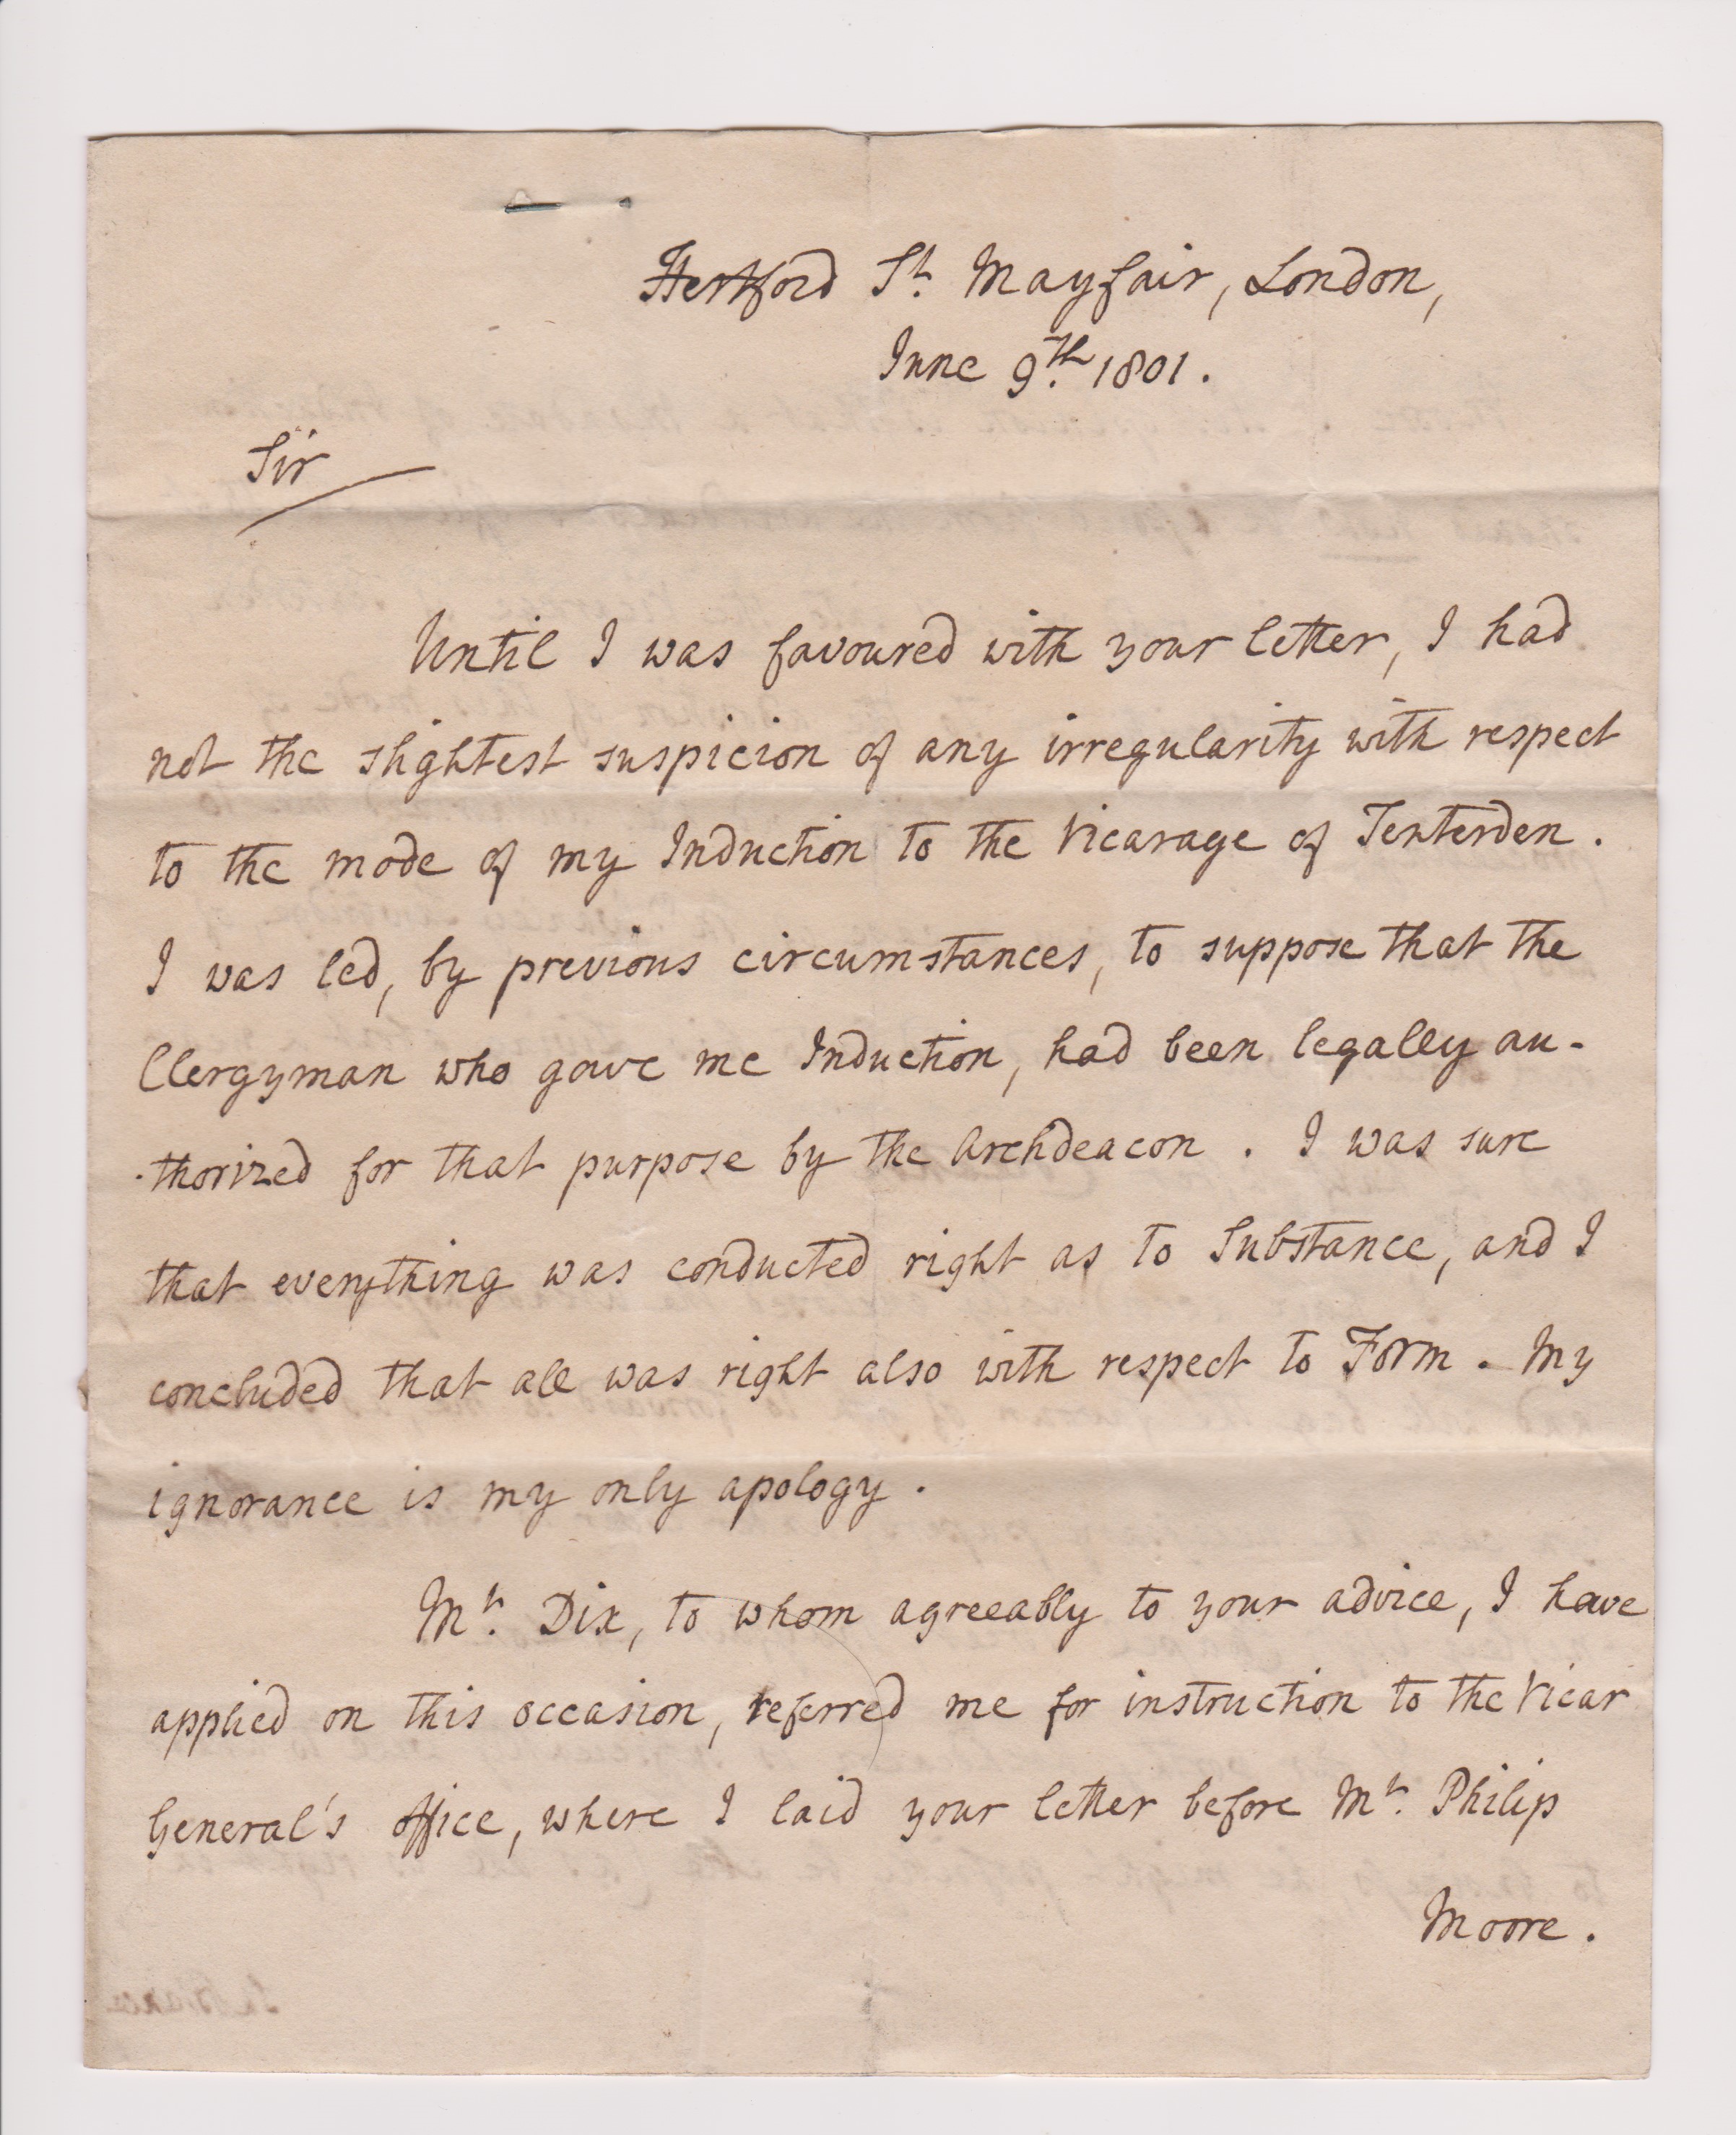 Hertford St. Mayfair, London,
June 9th. 1801.
Sir
Until I was favoured with your letter, I had
not the slightest suspicion of any irregularity with respect
to the mode of my Induction to the Vicarage of Tenterden.
I was led, by previous circumstances, to suppose that the
Clergyman who gave me Induction, had been legally au-
-thorized for that purpose by the Archdeacon. I was sure
that everything was conducted right as to Substance, and I
concluded that all was right also with respect to Form. My
ignorance is my only apology.
Mr. Dix, to whom agreeably to your advice, I have
applied on this occasion, referred me for instruction to the Vicar
General's office, where I laid your letter before Mr. Philip
Moore.